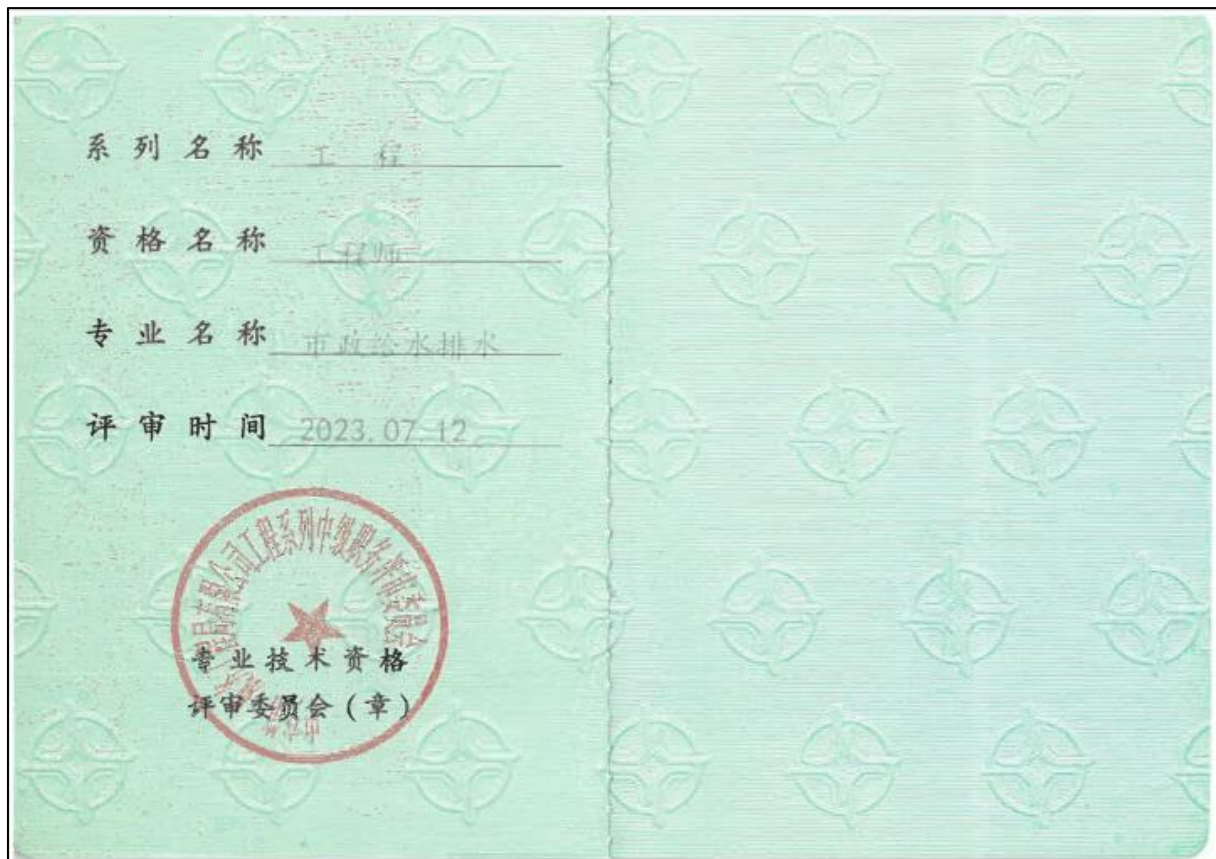 系列名称 工程
资格名称 工程师
专业名称 市政给水排水
评审时间 2023.07.12
程局有限公司工程系列中级职务评审委员会
专业技术资格
评审委员会(章)